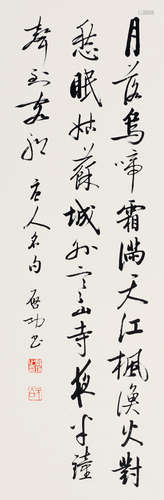 月落烏啼霜滿天江楓漁火對
愁眠姑蘇城外寒山寺夜半鐘
聲到客船 唐人名句 啟功書